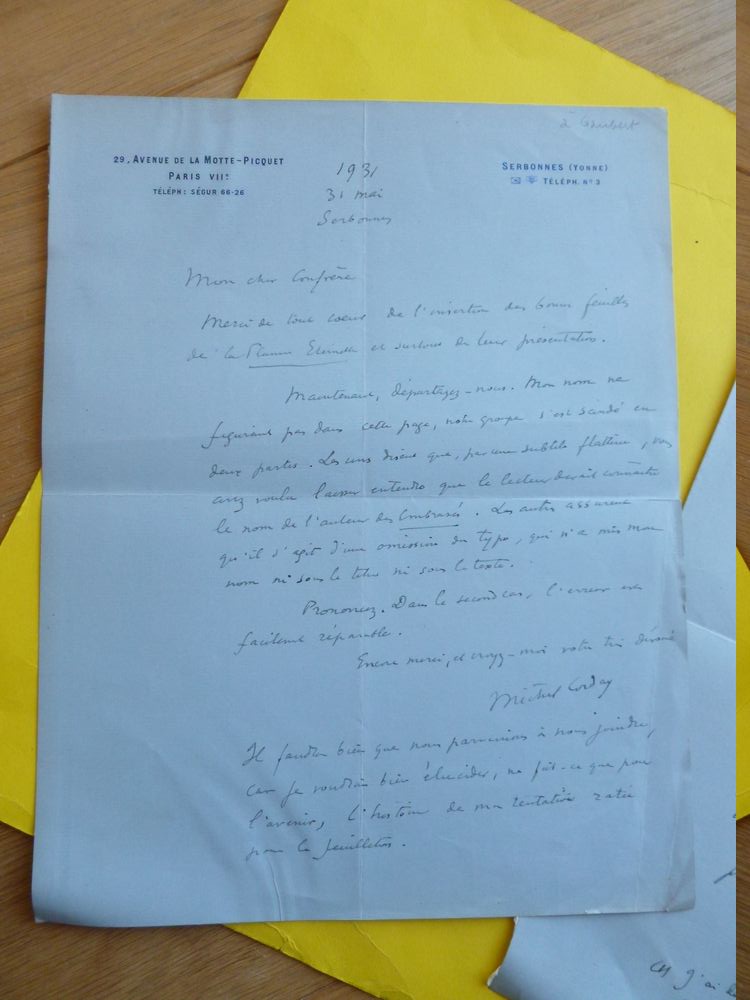 à Gaubert
29, AVENUE DE LA MOTTE-PICQUET
PARIS VIIᵉ
TÉLÉPH : SÉGUR 66-26
SERBONNES (YONNE)
TÉLÉPH. Nº 3
1931
31 mai
Serbonnes
Mon cher Confrère
Merci de tout coeur de l'insertion des bonnes feuilles
de la Flamme Eternelle et surtout de leur présentation.
Maintenant, départagez-nous. Mon nom ne
figurant pas dans cette page, notre groupe s'est scindé en
deux partis. Les uns disent que, par une subtile flatterie, vous
avez voulu laisser entendre que le lecteur devait connaître
le nom de l'auteur des Embrasés. Les autres assurent
qu'il s'agit d'une omission du typo, qui n'a mis mon
nom ni sous le titre ni sous le texte.
Prononcez. Dans le second cas, l'erreur est
facilement réparable.
Encore merci, et croyez-moi votre très dévoué
Michel Corday
Il faudra bien que nous parvenions à nous joindre,
car je voudrais bien élucider, ne fût-ce que pour
l'avenir, l'histoire de ma tentative ratée
pour le feuilleton.
j'ai